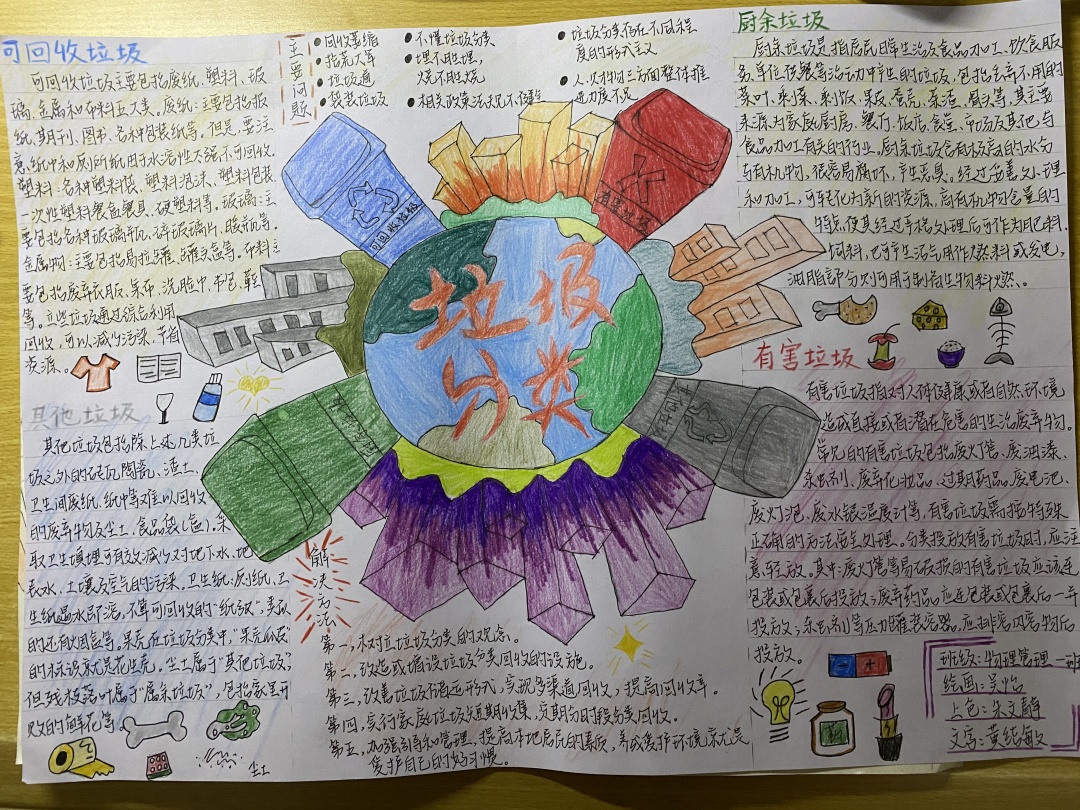 可回收垃圾
可回收垃圾主要包括废纸、塑料、玻
璃、金属和布料五大类。废纸：主要包括报
纸、期刊、图书、各种包装纸等。但是，要注
意纸巾和厕所纸因水溶性太强不可回收。
塑料：各种塑料袋、塑料泡沫、塑料包装
一次性塑料餐盒餐具、硬塑料等。玻璃：主
要包括各种玻璃瓶、碎玻璃片、暖瓶等。
金属物：主要包括易拉罐、罐头盒等。布料主
要包括废弃衣服、桌布、洗脸巾、书包、鞋
等。这些垃圾通过综合利用
回收，可以减少污染，节省
资源。
主要问题
回收萎缩
拾荒大军
垃圾通
袋装垃圾
不懂垃圾分类
埋不胜埋，
烧不胜烧
相关政策法规不健全
垃圾分类存在不同程
度的形式主义
人、财、物三方面整体推
进力度不足
厨余垃圾
厨余垃圾是指居民日常生活及食品加工、饮食服
务、单位供餐等活动中产生的垃圾，包括丢弃不用的
菜叶、剩菜、剩饭、果皮、蛋壳、茶渣、骨头等，其主要
来源为家庭厨房、餐厅、饭店、食堂、市场及其他与
食品加工有关的行业。厨余垃圾含有极高的水分
与有机物，很容易腐坏，产生恶臭。经过妥善处理
和加工，可转化为新的资源，高有机物含量的
特点使其经过严格处理后可作为肥料、
饲料，也可产生沼气用作燃料或发电，
油脂部分则可用于制备生物料燃。
可回收垃圾
有害垃圾
垃圾
分类
其他垃圾
其他垃圾
其他垃圾包括除上述几类垃
圾之外的砖瓦陶瓷、渣土、
卫生间废纸、纸巾等难以回收
的废弃物及尘土、食品袋（盒）。采
取卫生填埋可有效减少对地下水、地
表水、土壤及空气的污染。卫生纸：厕纸、卫
生纸遇水即溶，不算可回收的“纸张”，类似
的还有烟盒等。果壳：在垃圾分类中，“果壳瓜皮”
的标识就是花生壳。尘土属于“其他垃圾”，
但残枝落叶属于“厨余垃圾”，包括家里开
败的鲜花等。
尘土
有害垃圾
有害垃圾指对人体健康或者自然环境
造成直接或者潜在危害的生活废弃物。
常见的有害垃圾包括废灯管、废油漆、
杀虫剂、废弃化妆品、过期药品、废电池、
废灯泡、废水银温度计等，有害垃圾需按特殊
正确的方法安全处理。分类投放有害垃圾时，应注
意轻放。其中：废灯管等易破损的有害垃圾应该连
包装或包裹后投放；废弃药品应连包装或包裹后一并
投放；杀虫剂等压力罐装容器，应排空内容物后
投放。
解决方法
第一，树立垃圾分类的观念。
第二，改造或增设垃圾分类回收的设施。
第三，改善垃圾储运形式，实现多渠道回收，提高回收率。
第四，实行家庭垃圾定期收集，定期分时段分类回收。
第五，加强引导和管理，提高本地居民的素质，养成爱护环境就是
爱护自己的好习惯。
班级：物理管理一班
绘画：吴怡
上色：朱文静
文写：黄结敏